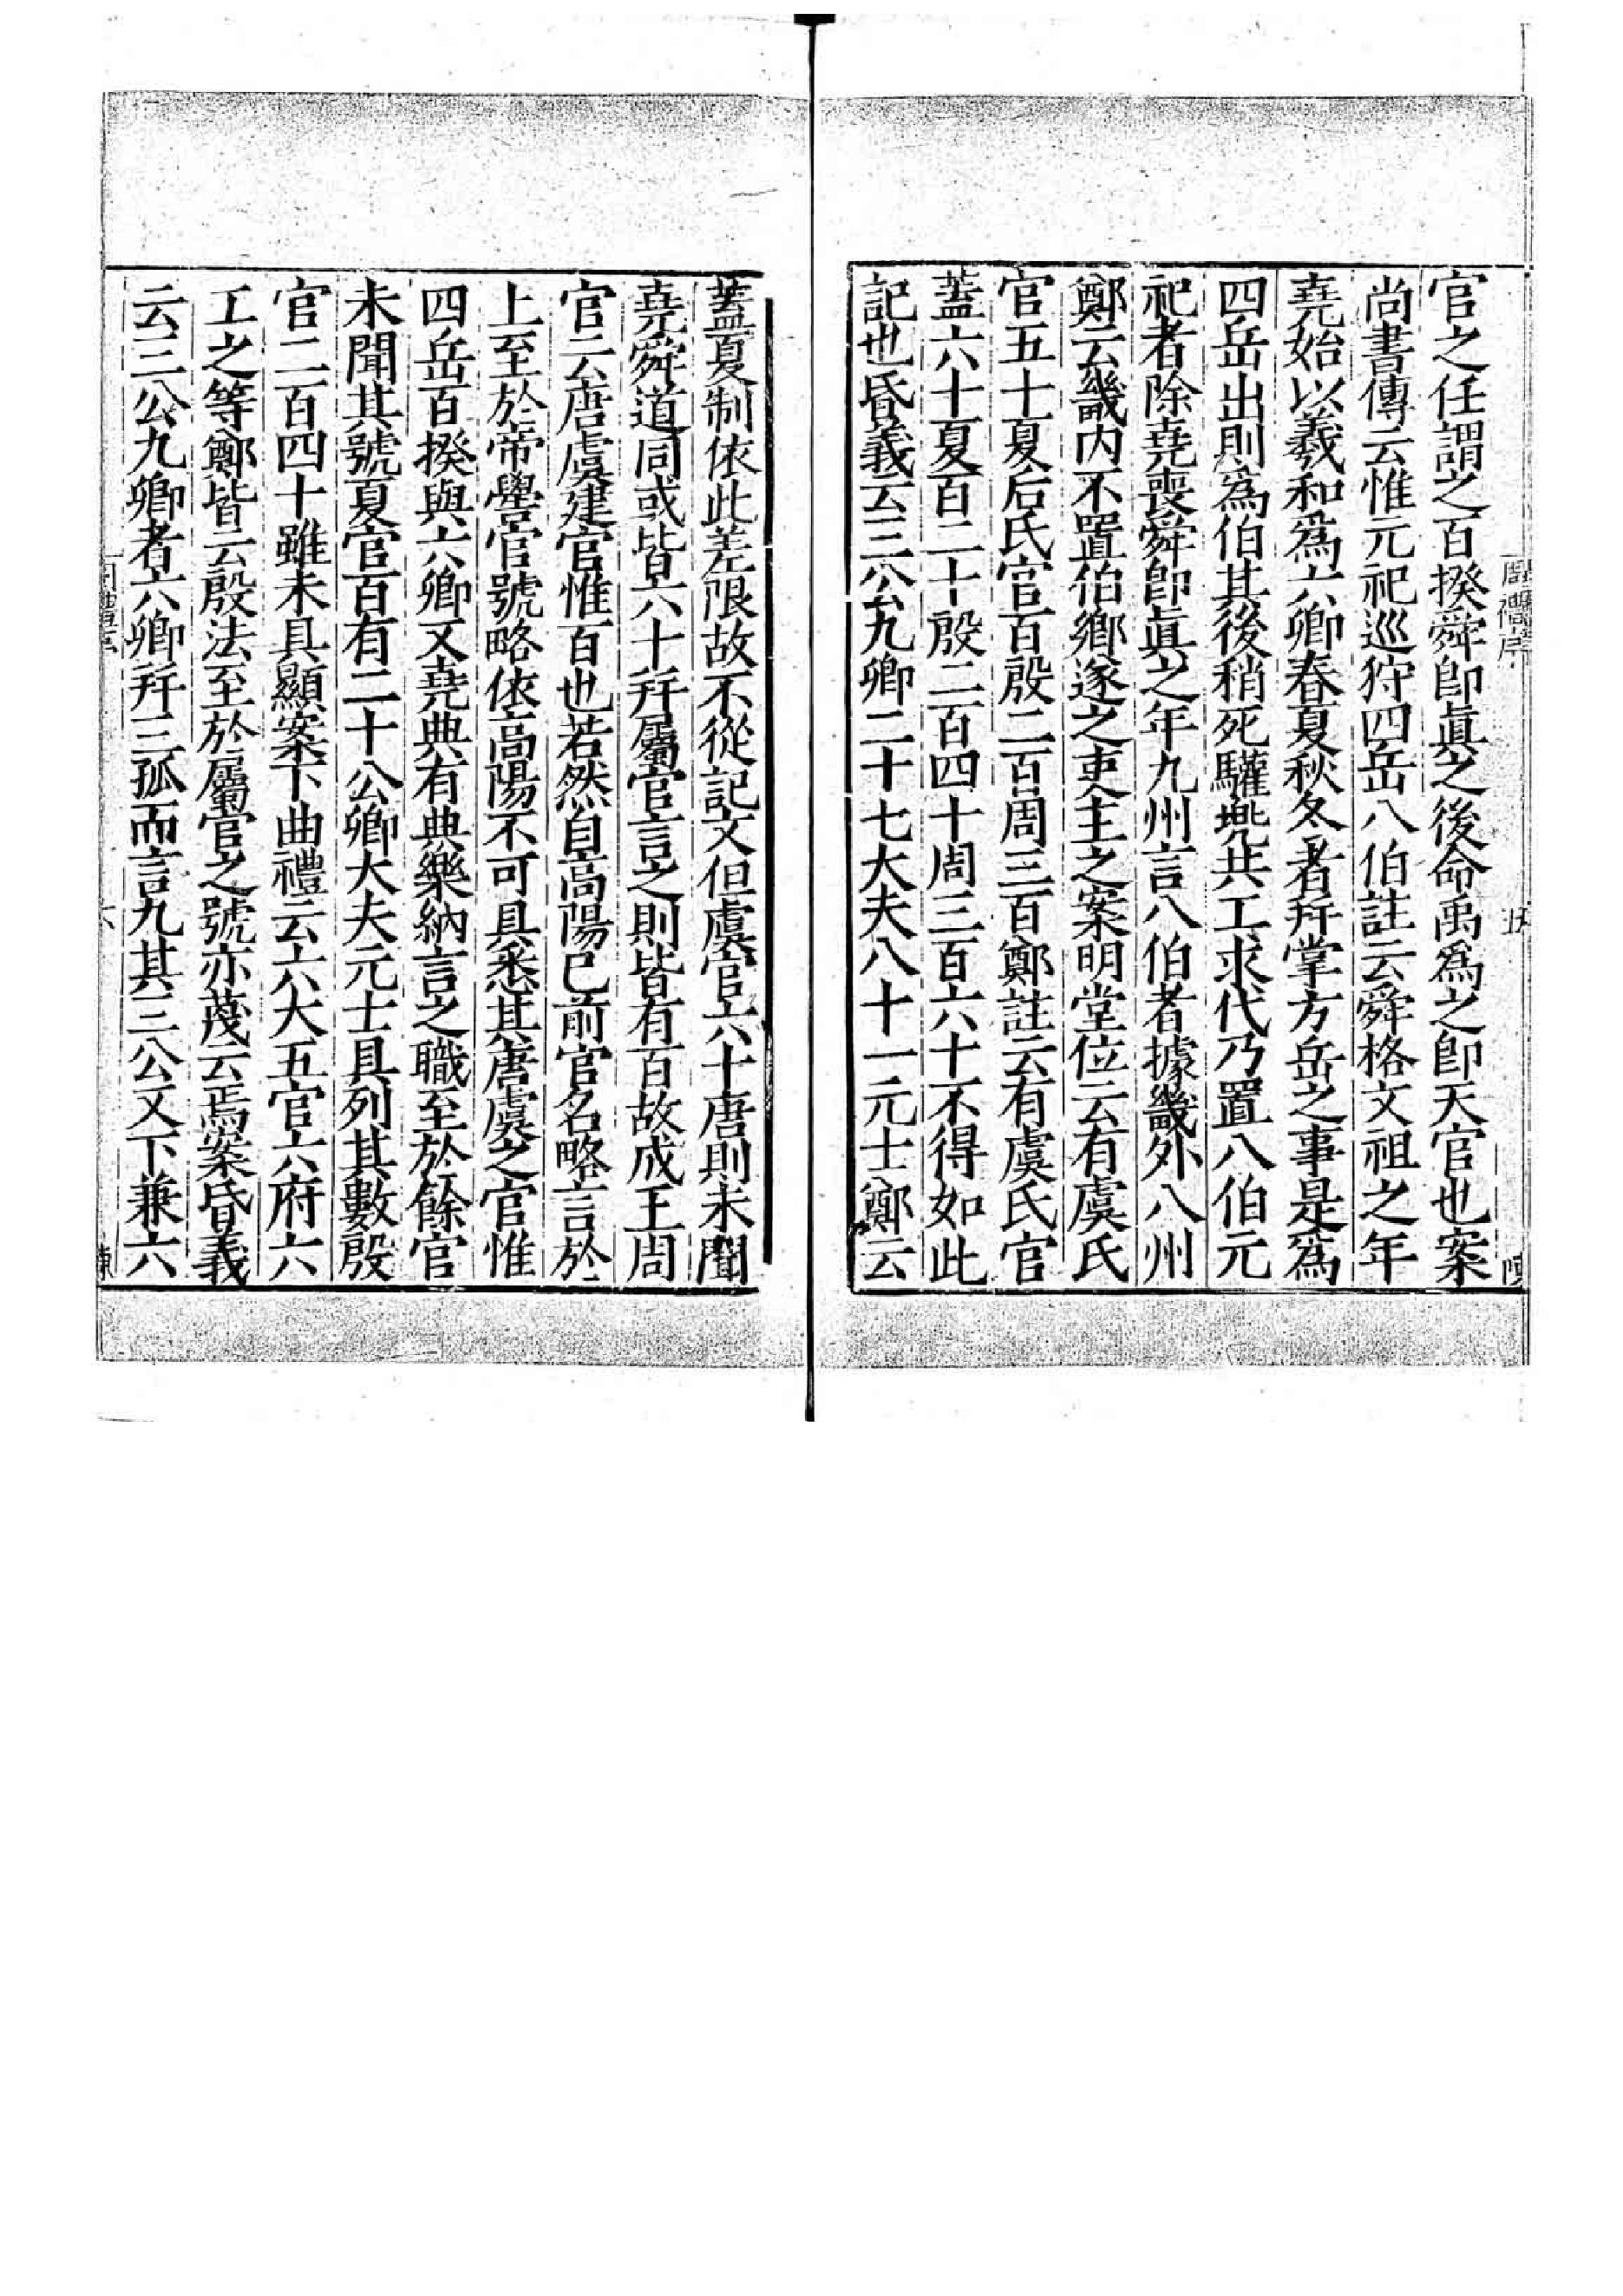 周禮序
五
官之任謂之百揆舜卽眞之後命禹爲之卽天官也案
尚書傳云惟元祀巡狩四岳八伯註云舜格文祖之年
堯始以羲和爲六卿春夏秋冬者并掌方岳之事是爲
四岳出則爲伯其後稍死驩兠共工求代乃置八伯元
祀者除堯喪舜卽眞之年九州言八伯者據畿外八州
鄭云畿内不置伯鄉遂之吏主之案明堂位云有虞氏
官五十夏后氏官百殷二百周三百鄭註云有虞氏官
蓋六十夏百二十殷二百四十周三百六十不得如此
記也昏義云三公九卿二十七大夫八十一元士鄭云
蓋夏制依此差限故不從記文但虞官六十唐則未聞
堯舜道同或皆六十并屬官言之則皆有百故成王周
官云唐虞建官惟百也若然自高陽已前官名略言於
上至於帝嚳官號略依高陽不可具悉其唐虞之官惟
四岳百揆與六卿又堯典有典樂納言之職至於餘官
未聞其號夏官百有二十公卿大夫元士具列其數殷
官二百四十雖未具顯案下曲禮云六大五官六府六
工之等鄭皆云殷法至於屬官之號亦蔑云焉案昏義
云三公九卿者六卿并三孤而言九其三公又下兼六
六